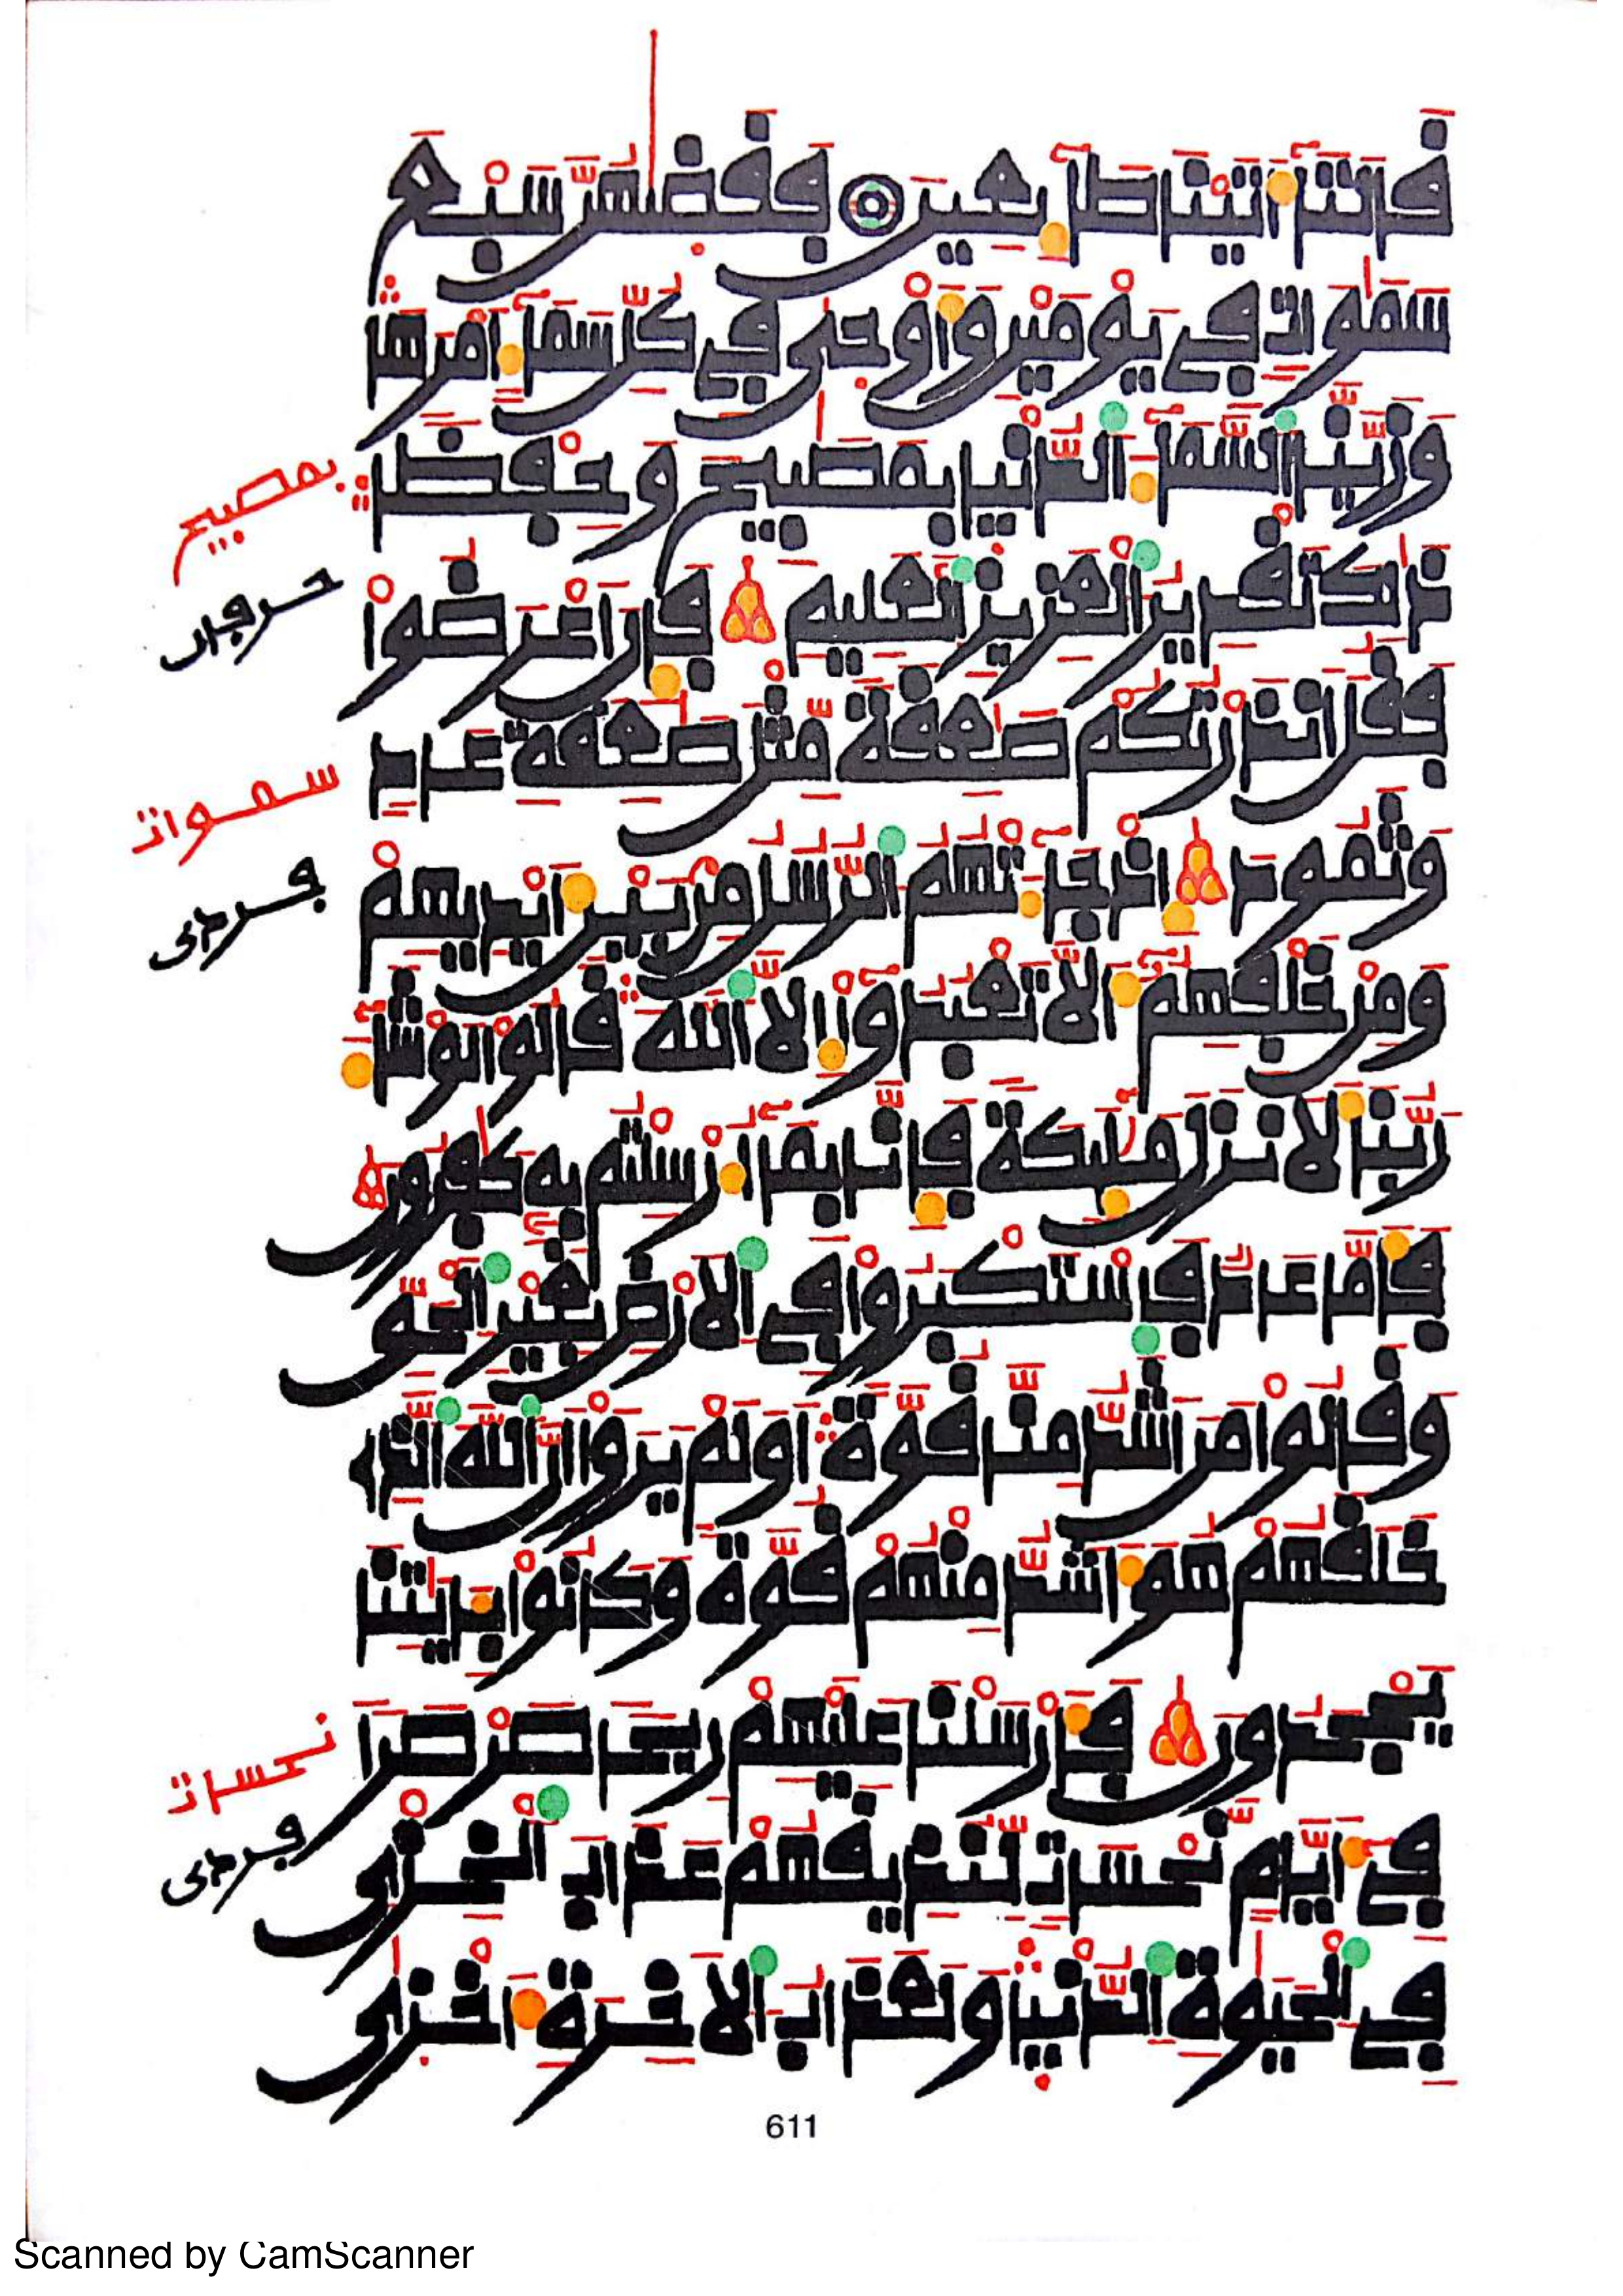 قالتا أتينا طائعين فقضيهن سبع
سموات في يومين وأوحى في كل سماء امرها
وزينا السماء الدنيا بمصبيح وحفظا
بمصبيح
ذلك تقدير العزيز العليم فإن اعرضوا
حرفان
فقل انذرتكم صعقة مثل صعقة عاد
سموات
وثمود إذ جاءتهم الرسل من بين أيديهم
فردى
ومن خلفهم ألا تعبدوا إلا الله قالوا لو شاء
ربنا لأنزل مليكة فإنا بما أرسلتم به كفرون
فأما عاد فاستكبروا في الارض بغير الحق
وقالوا من اشد منا قوة اولم يروا ان الله الذي
خلقهم هو أشد منهم قوة وكانوا بـٔايتنا
يجحدون فأرسلنا عليهم ريحا صرصرا
نحسات
في أيام نحسات لنذيقهم عذاب الخزي
فردى
في الحيوة الدنيا ولعذاب الاخرة أخزى
611
Scanned by CamScanner